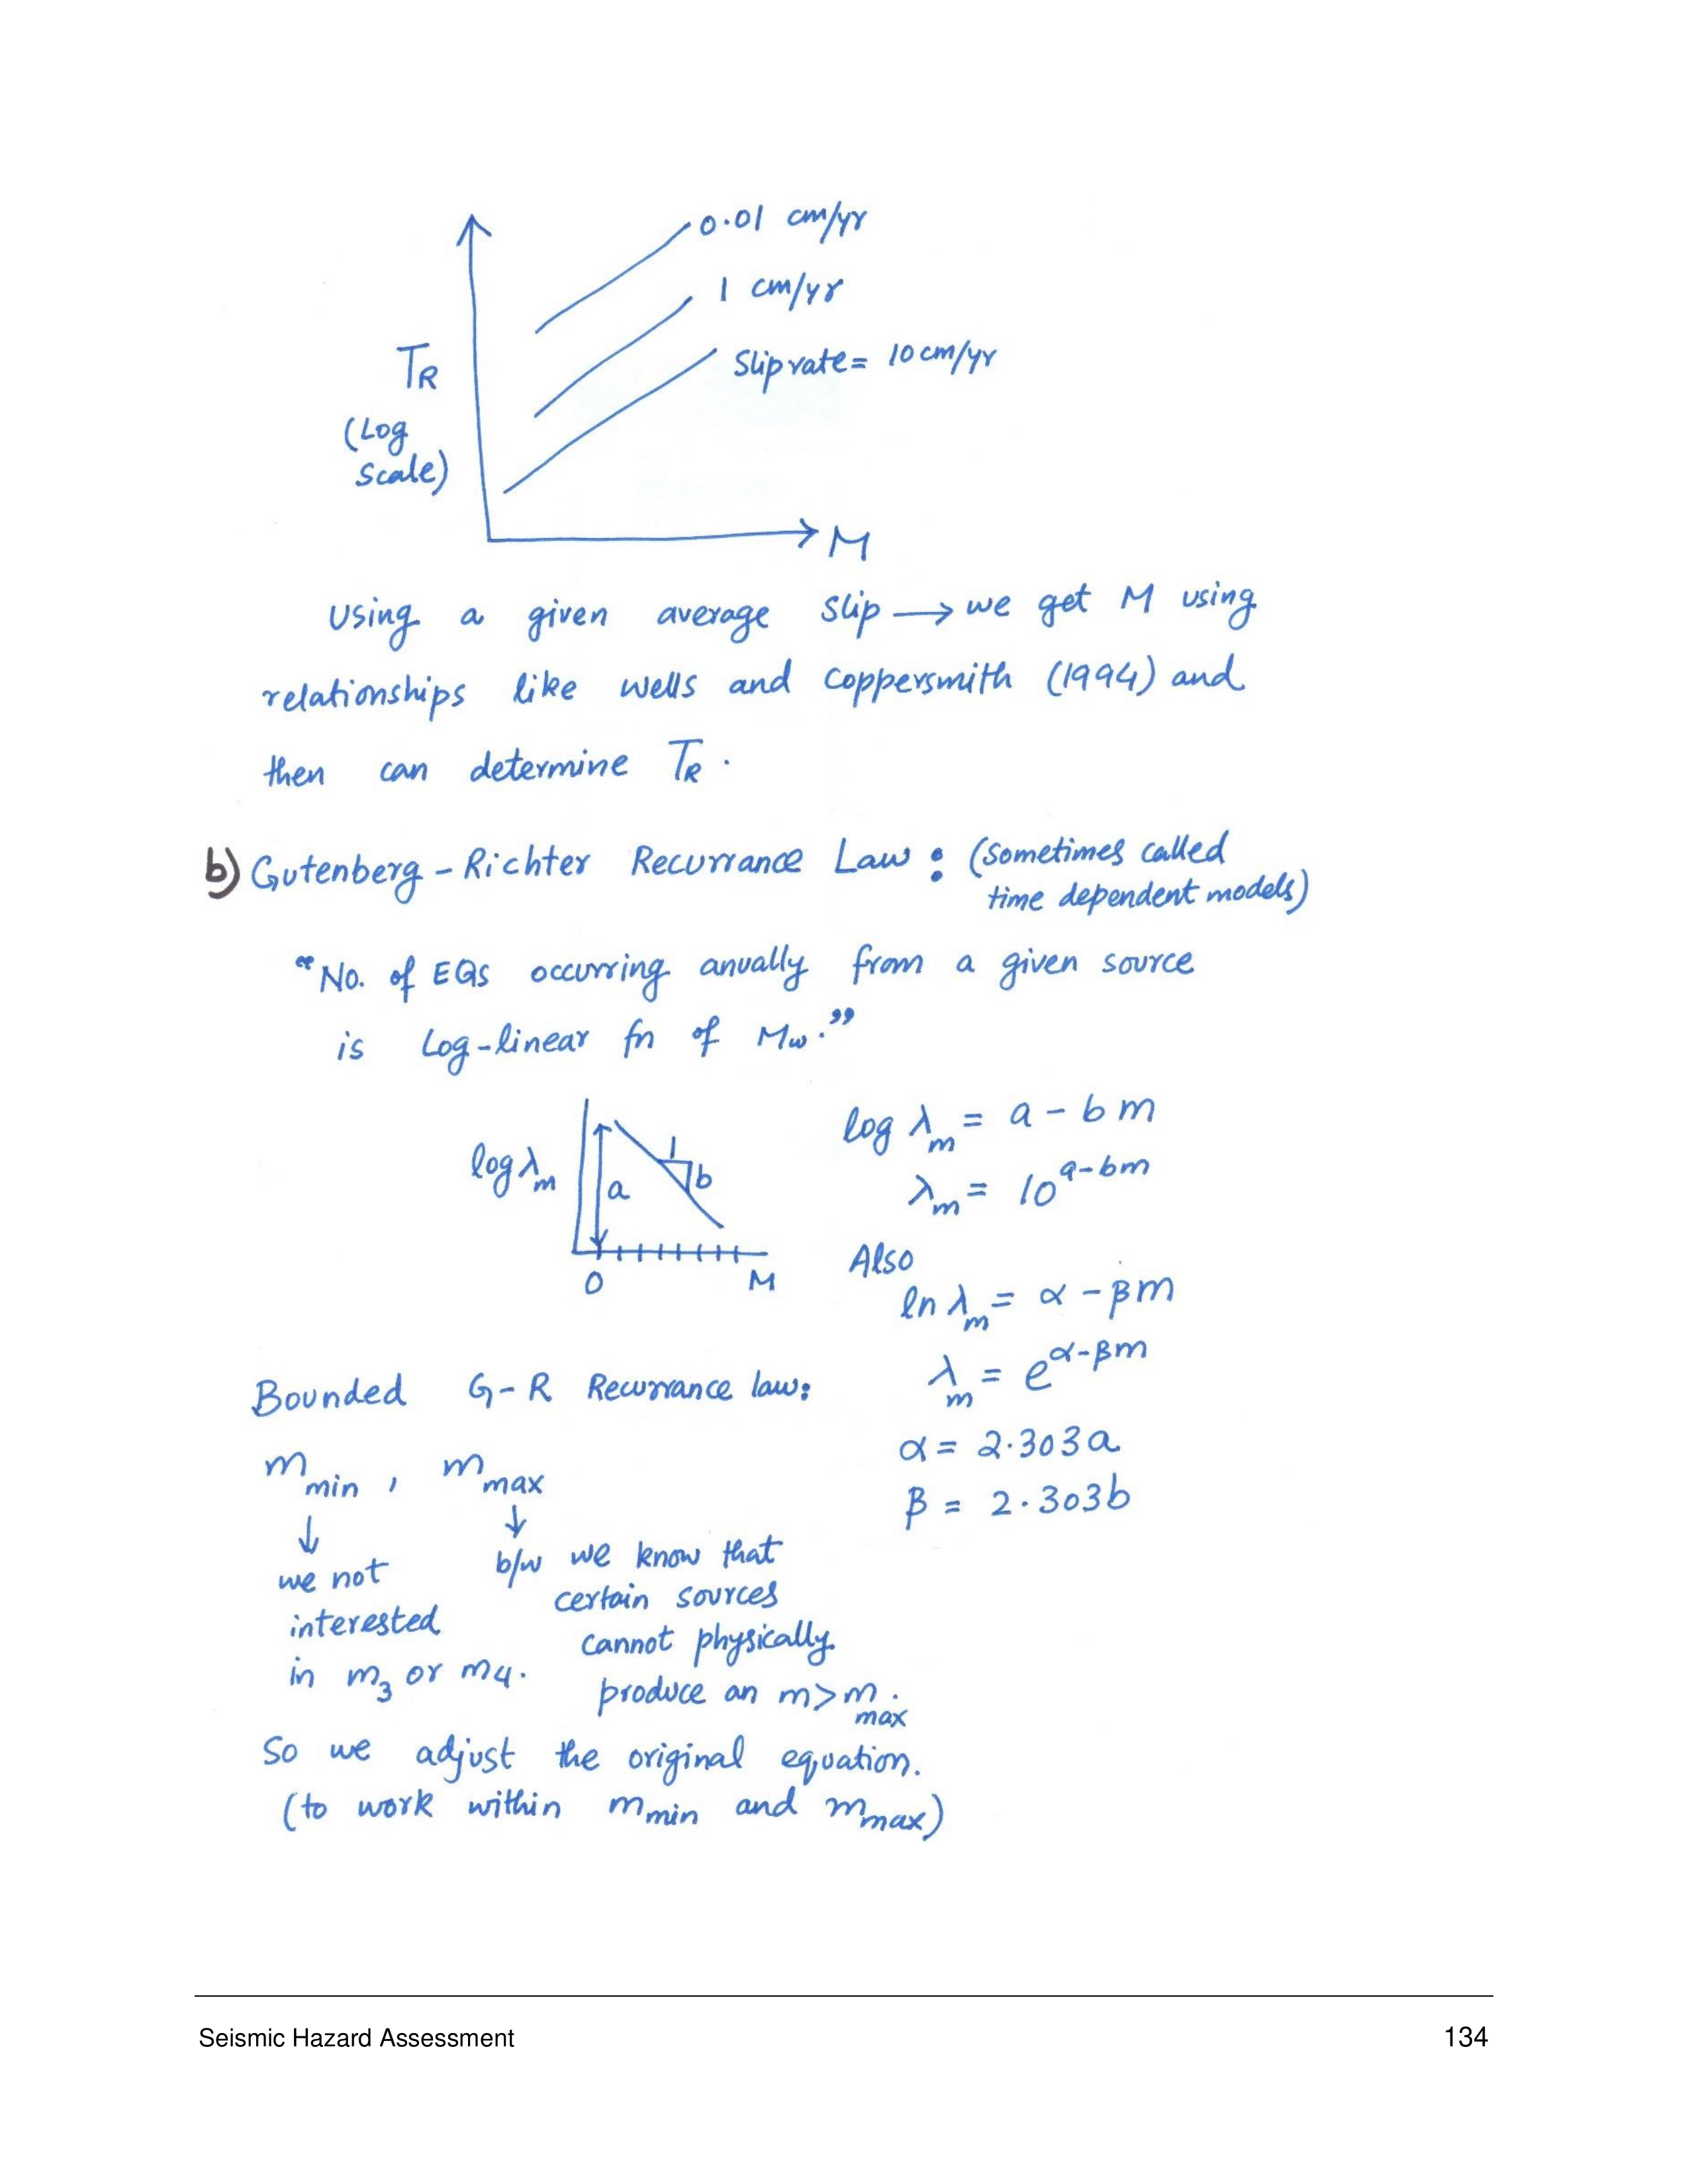 0.01 cm/yr
1 cm/yr
Slip rate = 10 cm/yr
TR
(Log
Scale)
M
Using a given average slip → we get M using
relationships like wells and coppersmith (1994) and
then can determine TR.
b) Gutenberg - Richter Recurrance Law : (sometimes called
time dependent models)
"No. of EQs occurring anually from a given source
is Log-linear fn of Mw."
log λm
a
1
b
0
M
log λm = a - bm
λm = 10^a-bm
Also
ln λm = α - βm
λm = e^α-βm
α = 2.303a
β = 2.303b
Bounded G-R Recurrance law:
m min , m max
↓ ↓
we not
interested
in m3 or m4.
b/w we know that
certain sources
cannot physically
produce an m > m max.
So we adjust the original equation.
(to work within mmin and mmax)
Seismic Hazard Assessment 134